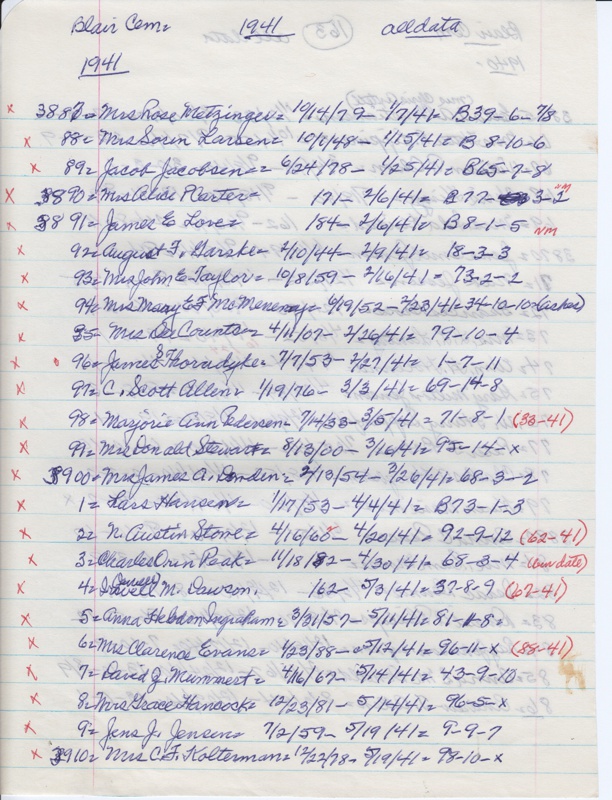 Blair Cem= 1941 alldata
1941
x 3887= Mrs Rose Metzinger= 10/14/79- 1/7/41= B39-6-7/8
x 88= Mrs Soren Larsen= 10/1/48- 1/15/41= B 8-10-6
x 89= Jacob Jacobsen= 6/24/78- 1/25/41= B65-7-8
x 3890= Mrs Alice Carter= 171- 2/6/41= B77- 3-1 NM
x 3891= James E Love= 184- 2/6/41= B8-1-5 NM
x 92= August F. Garske= 2/10/44- 2/9/41= 18-3-3
x 93= Mrs John E Taylor= 10/8/59- 2/16/41= 73-2-2
x 94= Mrs Mary E F McMenemy= 6/19/52- 2/23/41= 34-10-10 (ashes)
x 95= Mrs Counts= 4/11/07- 2/26/41= 79-10-4
x 96= James E Thorndyke= 7/7/53- 2/27/41= 1-7-11
x 97= C. Scott Allin= 1/19/76- 3/3/41= 69-14-8
x 98= Marjorie Ann Pedersen- 7/14/33- 3/5/41= 71-8-1 (33-41)
x 99= Mrs Donald Stewart= 8/13/00- 3/16/41= 95-14-x
x 3900= Mrs James A. 2/13/54- 3/26/41= 68-3-2
x 1= Lars Hansen= 1/17/53- 4/4/41= B73-1-3
x 2= N. Austin Stowe= 4/16/60- 4/20/41= 92-9-12 (62-41)
x 3= Charles Orin Peak= 11/18/82- 4/30/41= 68-3-4 (bin date)
x 4= Jewell M. Dawson. 162- 5/3/41= 37-8-9 (67-41)
x 5= Anna Hebdon Ingraham= 3/31/57- 5/11/41= 81-11-8=
x 6= Mrs Clarence Evans= 1/23/88- 5/12/41= 96-11-x (88-41)
x 7= David J. Mummert= 4/16/67- 5/14/41= 43-9-10
x 8= Mrs Grace Hancock= 12/23/81- 5/14/41= 96-5-x
x 9= Jens J. Jensen= 7/2/59- 5/19/41= 9-9-7
x 3910= Mrs C. F. Kolterman= 12/22/78- 5/19/41= 98-10-x